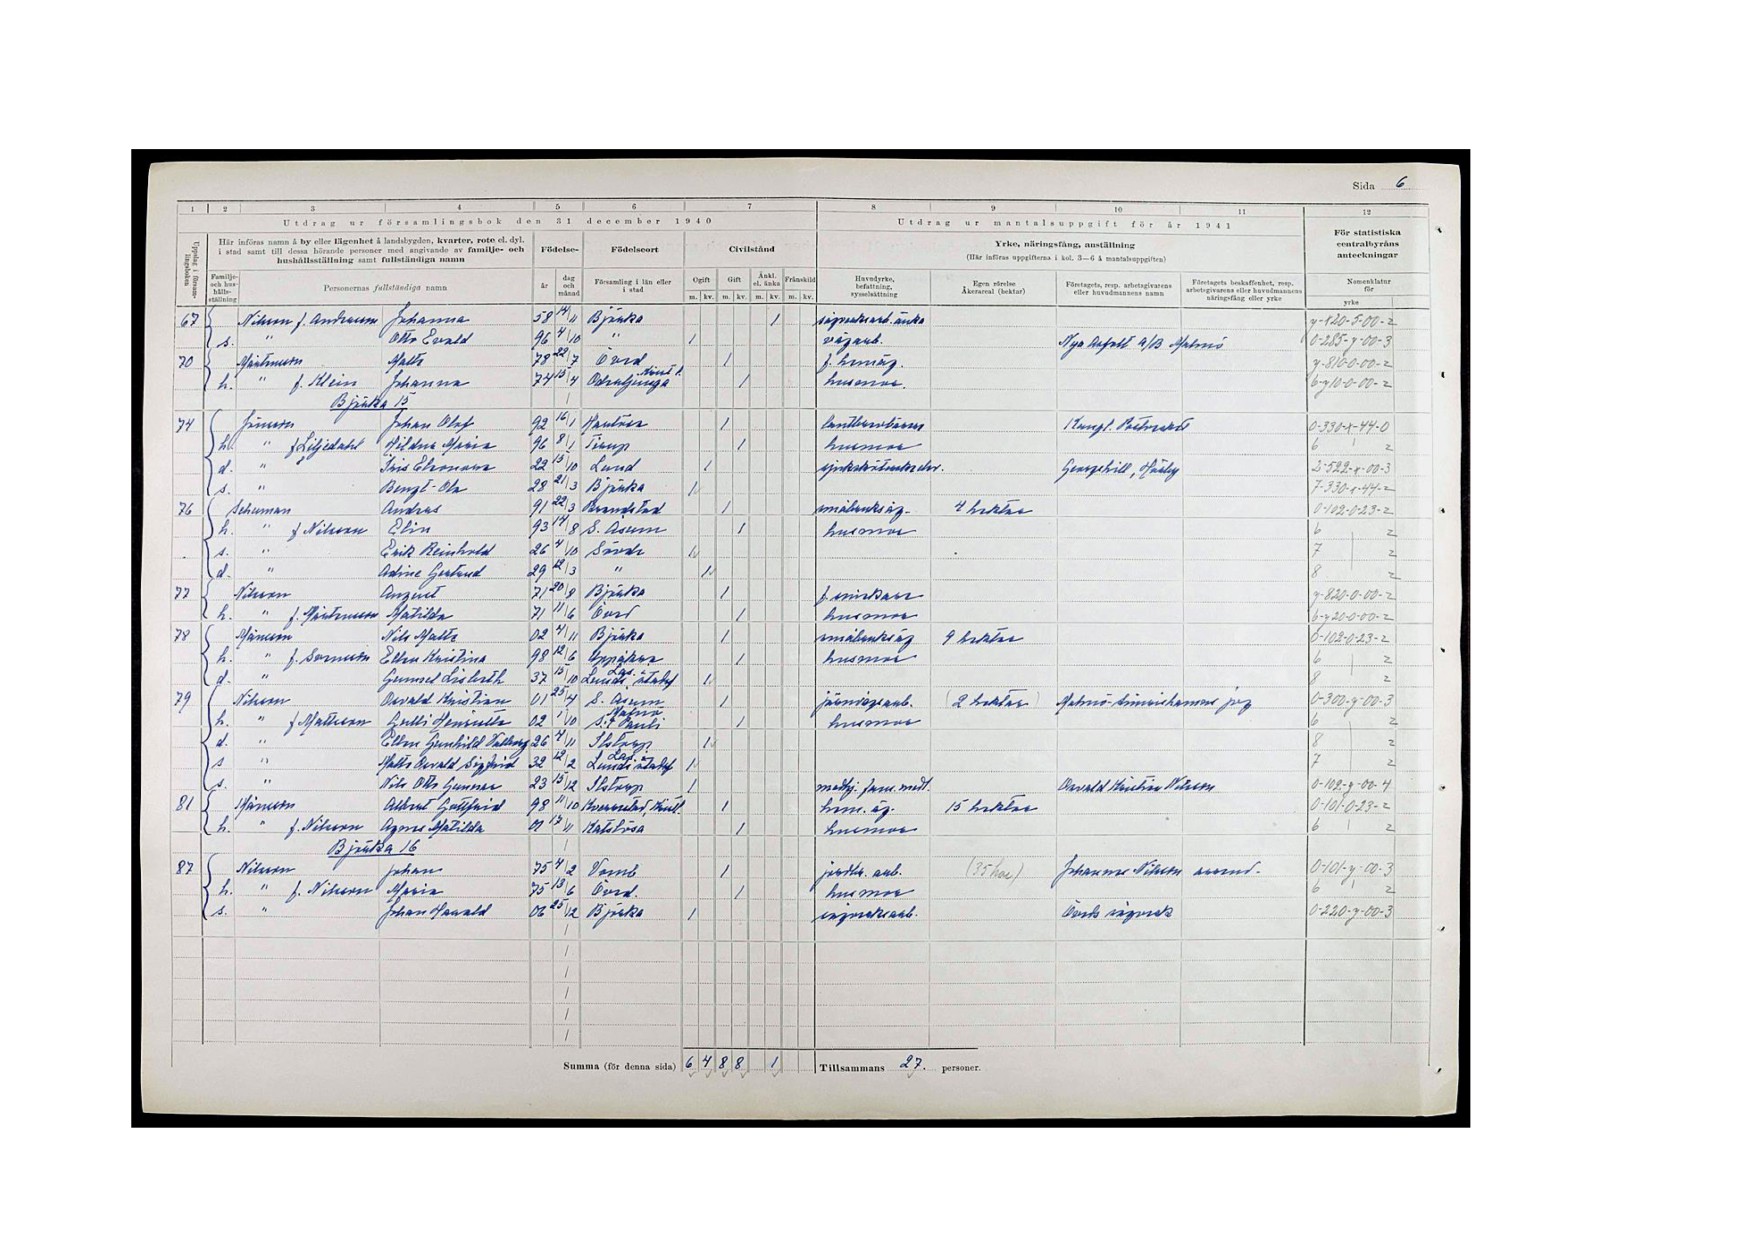 Sida 6
1 2 3 4 5 6 7 8 9 10 11 12
Utdrag ur församlingsbok den 31 december 1940
Utdrag ur mantalsuppgift för år 1941
Uppslag i församlingsboken
Här införas namn å by eller lägenhet å landsbygden, kvarter, rote el. dyl.
i stad samt till dessa hörande personer med angivande av familje- och
hushållsställning samt fullständiga namn
Familje- och hushållsställning
Personernas fullständiga namn
Födelse-
år
dag och månad
Födelseort
Församling i län eller i stad
Civilstånd
Ogift Gift Änkl. el. änka Frånskild
m. kv. m. kv. m. kv. m. kv.
Yrke, näringsfång, anställning
(Här införas uppgifterna i kol. 3—6 å mantalsuppgiften)
Huvudyrke, befattning, sysselsättning
Egen rörelse Åkerareal (hektar)
Företagets, resp. arbetsgivarens eller huvudmannens namn
Företagets beskaffenhet, resp. arbetsgivarens eller huvudmannens näringsfång eller yrke
För statistiska centralbyråns anteckningar
Nomenklatur för
yrke
67 Nilsson f. Andersson Johanna 58 14/11 Bjärka 1 änka y-120-5-00-2
s. " Otto Evald 96 4/10 " 1 vägarb. Nya Asfalt A/B Malmö 0-285-y-00-3
70 Malte 78 22/7 Övrid 1 y-810-0-00-2
h. " f. Klein Johanna 74 15/4 1 husmor. 6-y10-0-00-2
Bjärka 15
74 Jönsson Johan Olof 92 16/1 1 0-330-x-44-0
h. " f Liljedahl Hildur Maria 96 8/1 1 husmor 6 2
d. " Iris Eleonora 22 15/10 Lund 1 2-522-x-00-3
s. " Bengt-Ola 28 21/3 Bjärka 1 7-330-x-44-2
76 Schuman Andreas 91 22/3 Brandstad 1 4 hektar 0-102-0-23-2
h. " f Nilsson Elin 93 14/8 S. Åsum 1 husmor 6 2
s. " Erik Reinhold 26 4/10 1 7 2
d. " Gertrud 29 12/3 " 1 8 2
77 Nilsson August 71 20/8 Bjärka 1 y-820-0-00-2
h. " Matilda 71 11/6 1 husmor 6-y20-0-00-2
78 Månsson Nils Malte 02 4/11 Bjärka 1 9 hektar 0-102-0-23-2
h. " Ellen Kristina 98 12/6 Uppåkra 1 husmor 6 2
d. " Gunnel Lisbeth 37 15/10 1 8 2
79 Nilsson Osvald Kristian 01 25/4 S. Åsum 1 järnvägsarb. (2 hektar) Malmö-Simrishamns jvg 0-300-y-00-3
h. " f Mattsson Gulli Henrietta 02 1/10 Malmö S:t Pauli 1 husmor 6 2
d. " Ellen Gunhild Valborg 26 4/11 Ilstorp 1 8 2
s " Malte Osvald Sigfrid 32 12/2 1 7 2
s. " Nils Otto Gunnar 23 15/12 Ilstorp 1 Osvald Kristian Nilsson 0-102-y-00-4
81 Månsson Albert Gottfrid 98 11/10 1 hem. äg. 15 hektar 0-101-0-23-2
h. " f. Nilsson Agnes Matilda 01 17/11 Katslösa 1 husmor 6 2
Bjärka 16
87 Nilsson Johan 75 4/2 Vomb 1 jordbr. arb. (35 har) Johannes Nilsson arrend. 0-101-y-00-3
h. " f. Nilsson Maria 75 13/6 1 husmor 6 2
s. " Johan Harald 06 25/12 Bjärka 1 sågverksarb. sågverk 0-220-y-00-3
Summa (för denna sida) 6 4 8 8 1 Tillsammans 27. personer.